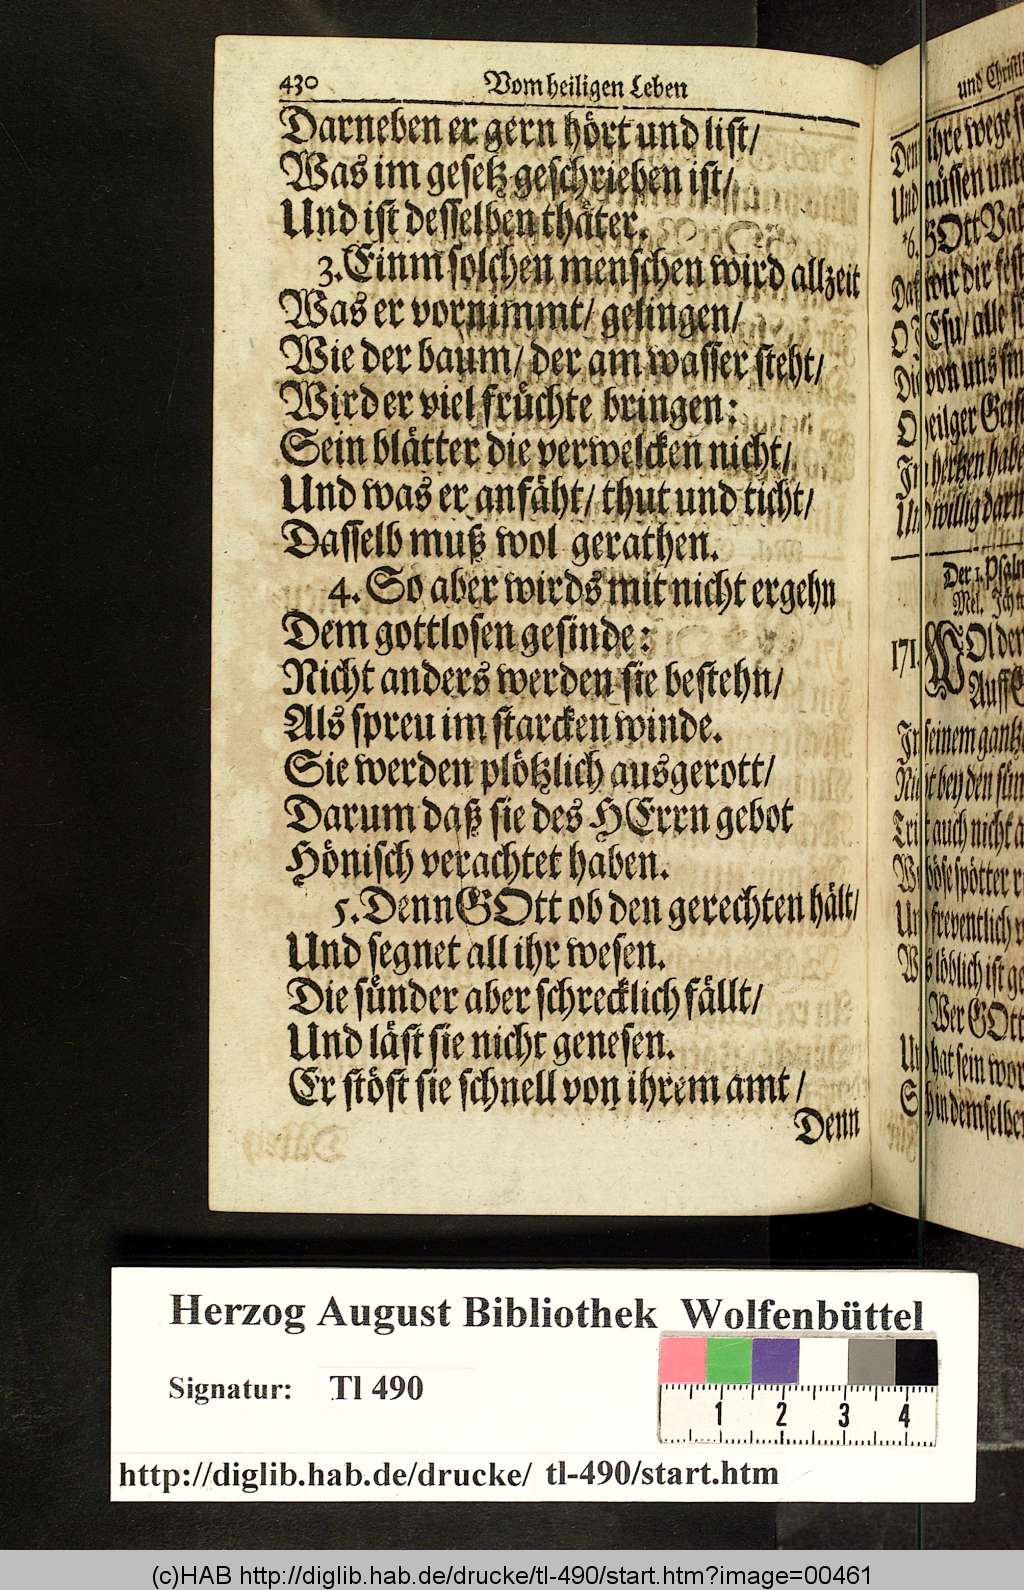 430 Vom heiligen Leben
Darneben er gern hört und list/
Was im gesetz geschrieben ist/
Und ist desselben thäter.
3. Einm solchen menschen wird allzeit
Was er vornimmt/ gelingen/
Wie der baum/ der am wasser steht/
Wird er viel früchte bringen:
Sein blätter die verwelcken nicht/
Und was er anfäht/ thut und ticht/
Dasselb muß wol gerathen.
4. So aber wirds mit nicht ergehn
Dem gottlosen gesinde:
Nicht anders werden sie bestehn/
Als spreu im starcken winde.
Sie werden plötzlich ausgerott/
Darum daß sie des HErrn gebot
Hönisch verachtet haben.
5. Denn GOtt ob den gerechten hält/
Und segnet all ihr wesen.
Die sünder aber schrecklich fällt/
Und läst sie nicht genesen.
Er stöst sie schnell von ihrem amt/
Denn
und
ihre wege
*6. GOtt
wir dir
alle
von uns
heilger
hertzen
willig
Der 1. Psalm
Mel. Ich
171. WOl
Auff
seinem
bey den
auch nicht
böse spötter
freventlich
löblich ist
Wer GOtt
hat sein
in demselben
Herzog August Bibliothek Wolfenbüttel
Signatur: Tl 490
1 2 3 4
http://diglib.hab.de/drucke/ tl-490/start.htm
(c)HAB http://diglib.hab.de/drucke/tl-490/start.htm?image=00461